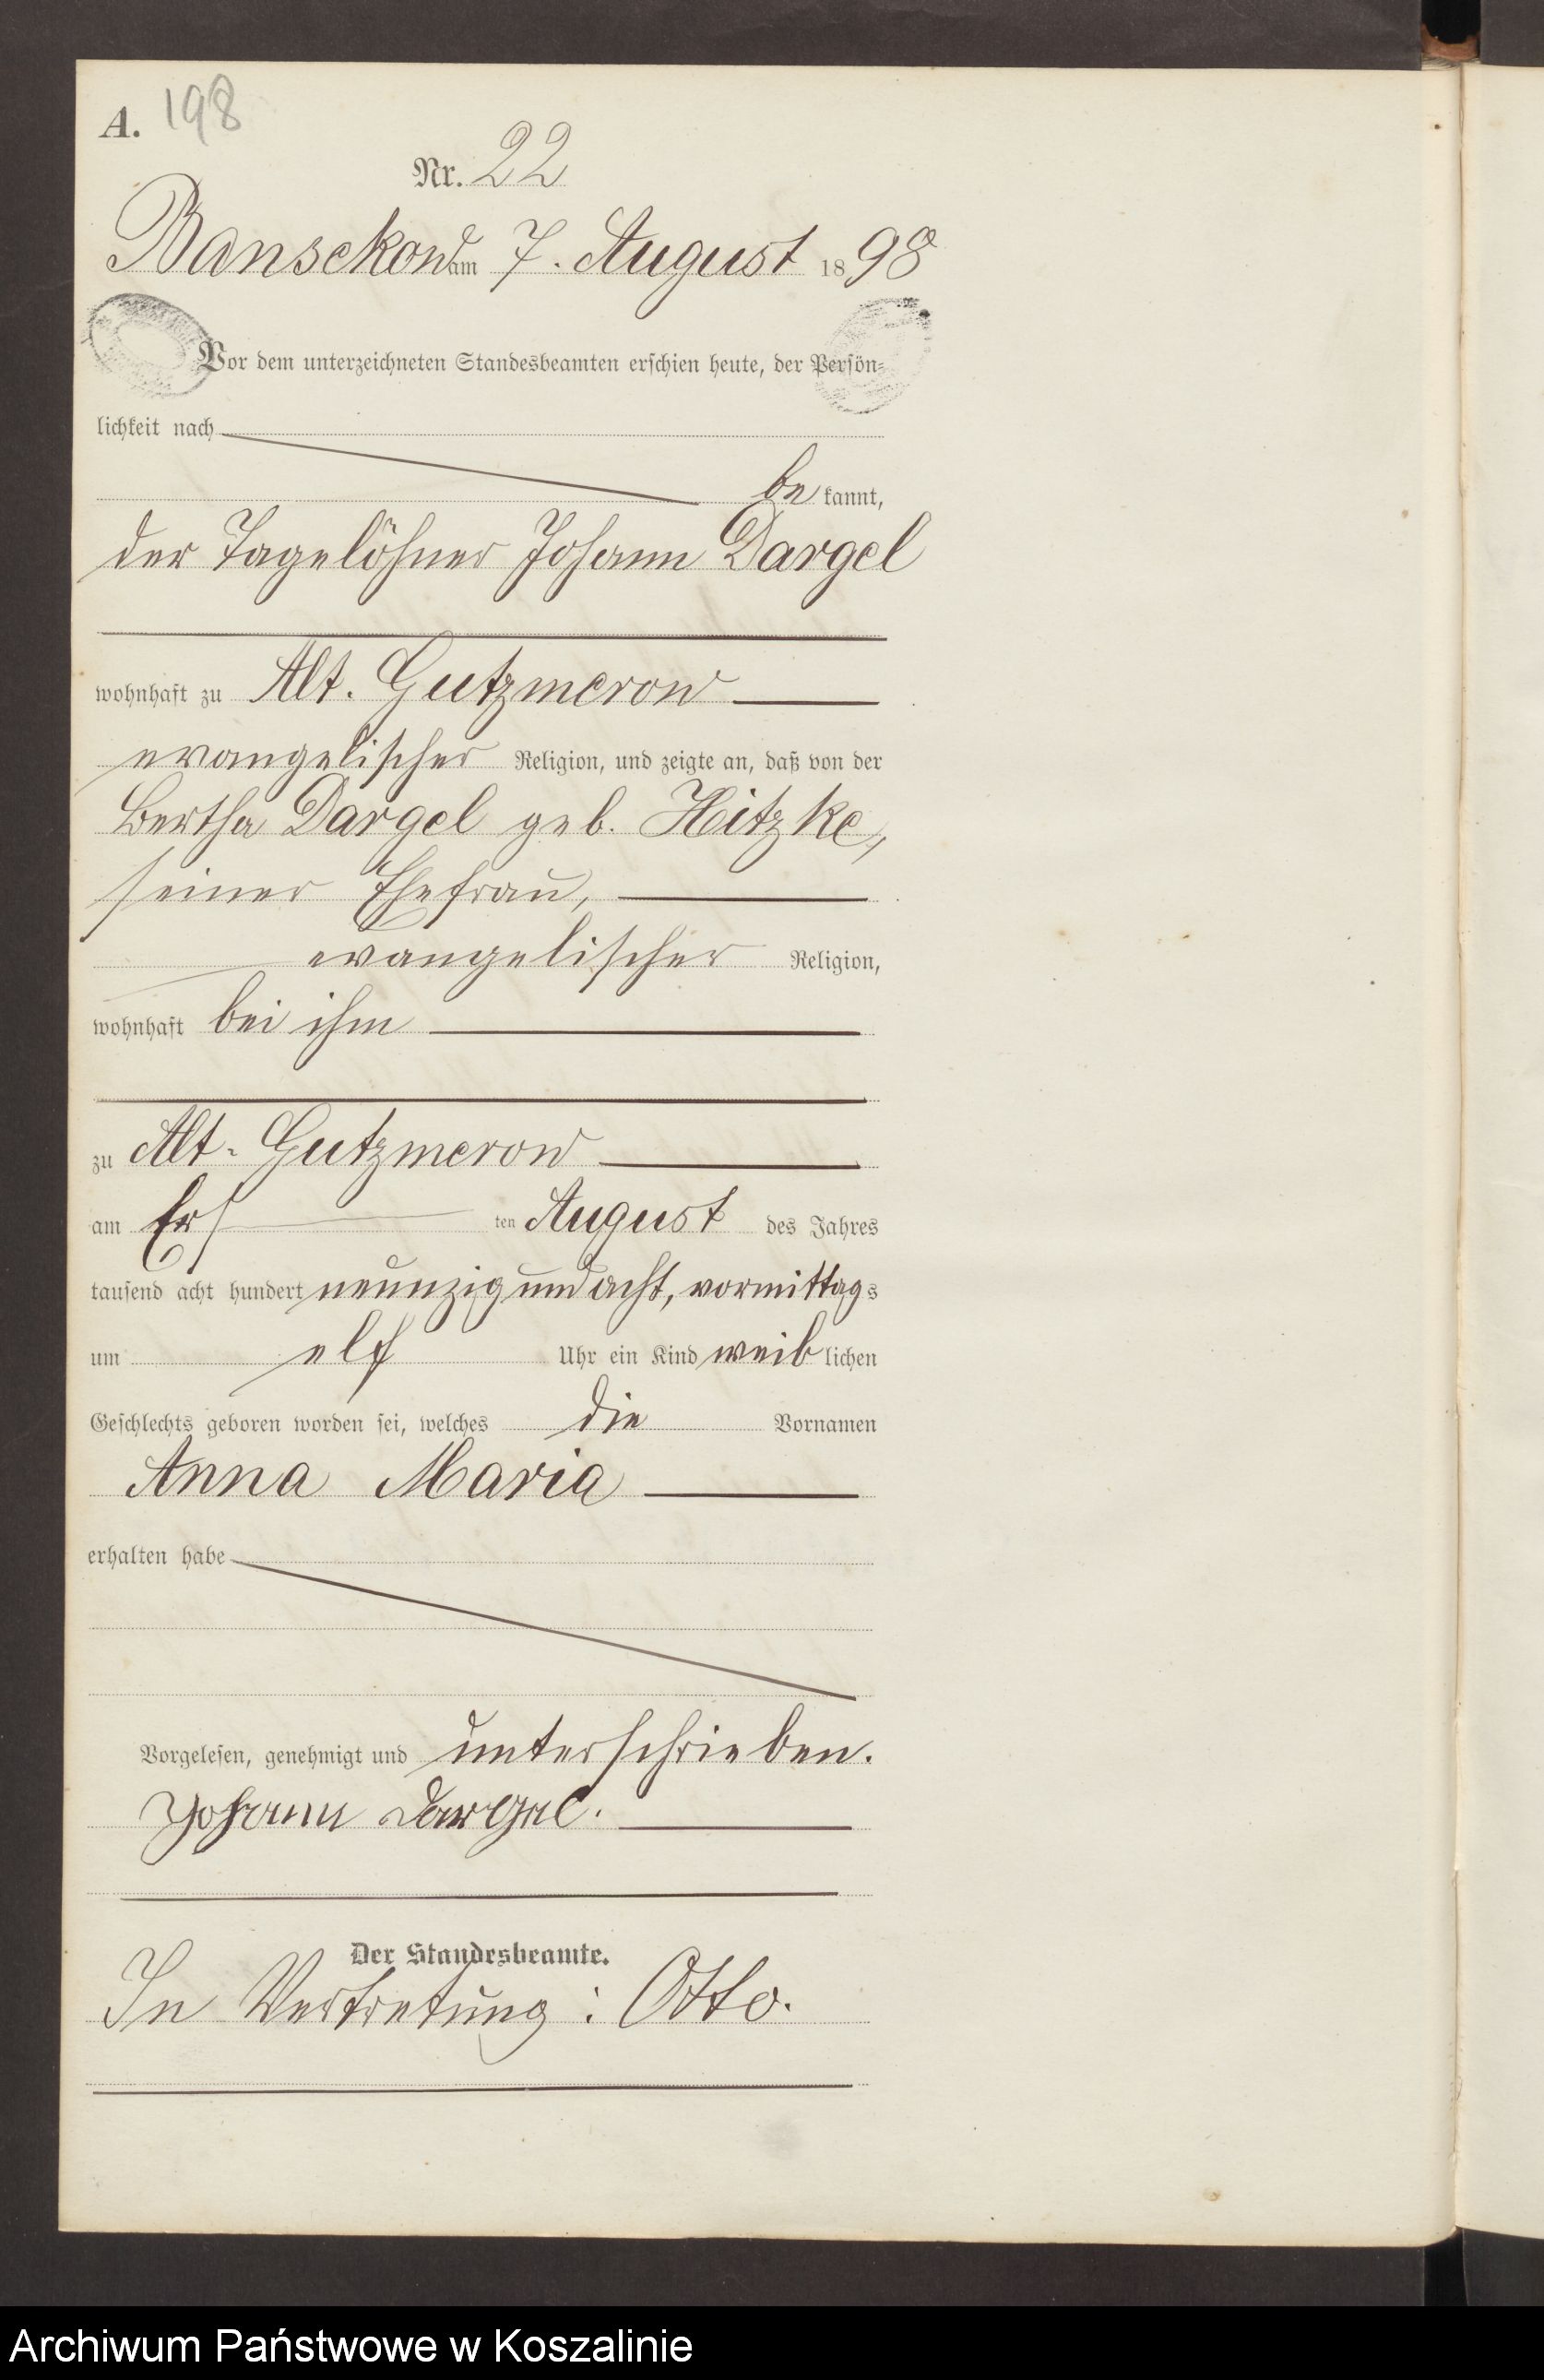 A. 198
Nr. 22
Bansekow am 7. August 1898
Vor dem unterzeichneten Standesbeamten erschien heute, der Persön-
lichkeit nach
bekannt,
der Tagelöhner Johann Dargel
wohnhaft zu Alt. Gutzmerow
evangelischer Religion, und zeigte an, daß von der
Bertha Dargel geb. Hitzke,
seiner Ehefrau,
evangelischer Religion,
wohnhaft bei ihm
zu Alt-Gutzmerow
am Ersten August des Jahres
tausend acht hundert neunzig und acht, vormittags
um elf Uhr ein Kind weiblichen
Geschlechts geboren worden sei, welches die Vornamen
Anna Maria
erhalten habe
Vorgelesen, genehmigt und unterschrieben.
Johann Dargel.
Der Standesbeamte.
In Vertretung: Otto.
Archiwum Państwowe w Koszalinie